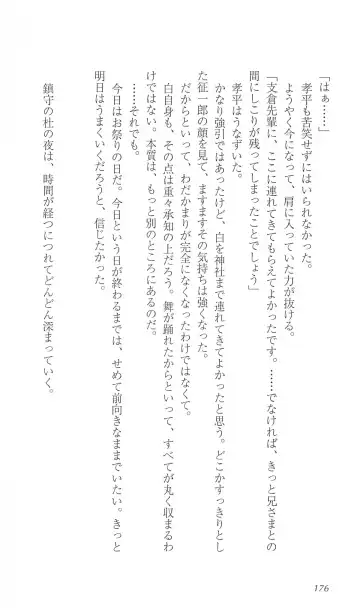 「はぁ……」
孝平も苦笑せずにはいられなかった。
ようやく今になって、肩に入っていた力が抜ける。
「支倉先輩に、ここに連れてきてもらえてよかったです。……でなければ、きっと兄さまとの
間にしこりが残ってしまったことでしょう」
孝平はうなずいた。
かなり強引ではあったけど、白を神社まで連れてきてよかったと思う。どこかすっきりとし
た征一郎の顔を見て、ますますその気持ちは強くなった。
だからといって、わだかまりが完全になくなったわけではなくて。
白自身も、その点は重々承知の上だろう。舞が踊れたからといって、すべてが丸く収まるわ
けではない。本質は、もっと別のところにあるのだ。
……それでも。
今日はお祭りの日だ。今日という日が終わるまでは、せめて前向きなままでいたい。きっと
明日はうまくいくだろうと、信じたかった。
鎮守の杜の夜は、時間が経つにつれてどんどん深まっていく。
176